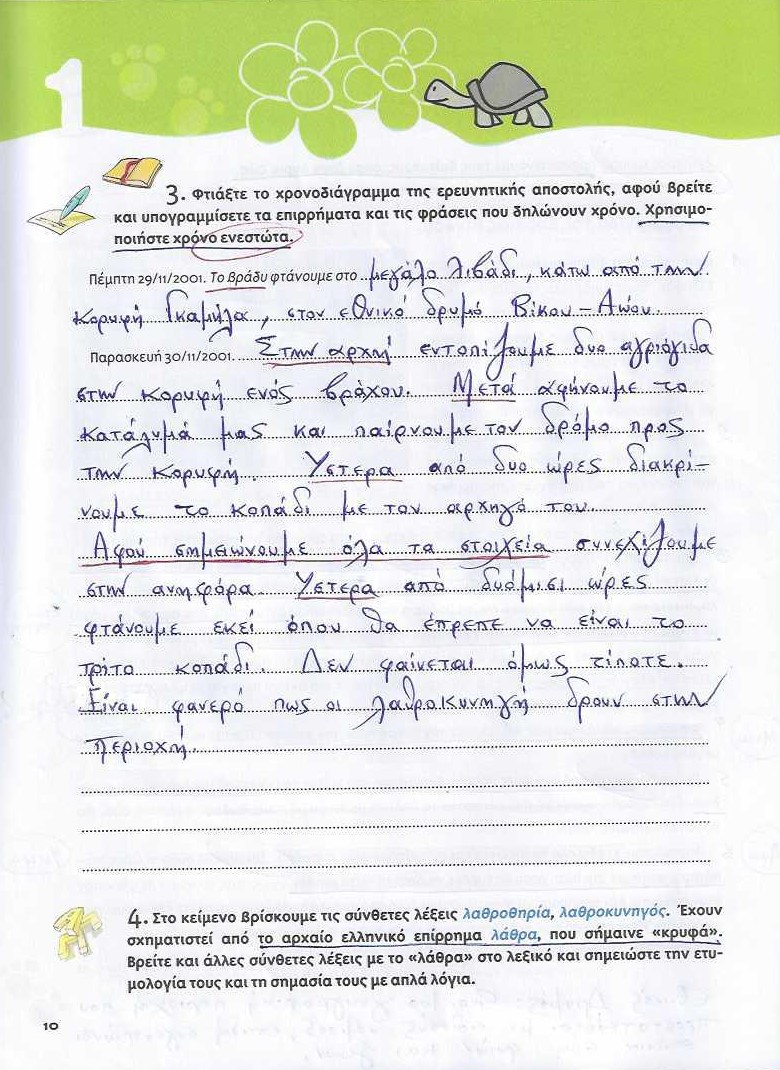 1
3. Φτιάξτε το χρονοδιάγραμμα της ερευνητικής αποστολής, αφού βρείτε
και υπογραμμίσετε τα επιρρήματα και τις φράσεις που δηλώνουν χρόνο. Χρησιμο-
ποιήστε χρόνο ενεστώτα.
Πέμπτη 29/11/2001. Το βράδυ φτάνουμε στο μεγάλο λιβάδι, κάτω από την
κορυφή Γκαμήλα, στον εθνικό δρυμό Βίκου - Αώου.
Παρασκευή 30/11/2001. Στην αρχή εντοπίζουμε δυο αγριόγιδα
στην κορυφή ενός βράχου. Μετά αφήνουμε το
κατάλυμά μας και παίρνουμε τον δρόμο προς
την κορυφή. Ύστερα από δυο ώρες διακρί-
νουμε το κοπάδι με τον αρχηγό του.
Αφού σημειώνουμε όλα τα στοιχεία συνεχίζουμε
στην ανηφόρα. Ύστερα από δυόμισι ώρες
φτάνουμε εκεί όπου θα έπρεπε να είναι το
τρίτο κοπάδι. Δεν φαίνεται όμως τίποτε.
Είναι φανερό πως οι λαθροκυνηγή δρουν στην
περιοχή.
4. Στο κείμενο βρίσκουμε τις σύνθετες λέξεις λαθροθηρία, λαθροκυνηγός. Έχουν
σχηματιστεί από το αρχαίο ελληνικό επίρρημα λάθρα, που σήμαινε «κρυφά».
Βρείτε και άλλες σύνθετες λέξεις με το «λάθρα» στο λεξικό και σημειώστε την ετυ-
μολογία τους και τη σημασία τους με απλά λόγια.
10